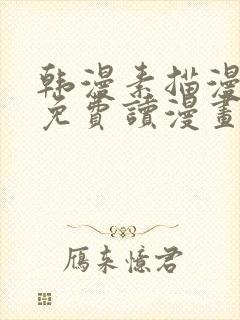 韩漫素描漫
免費讀漫畫
雁来憶君